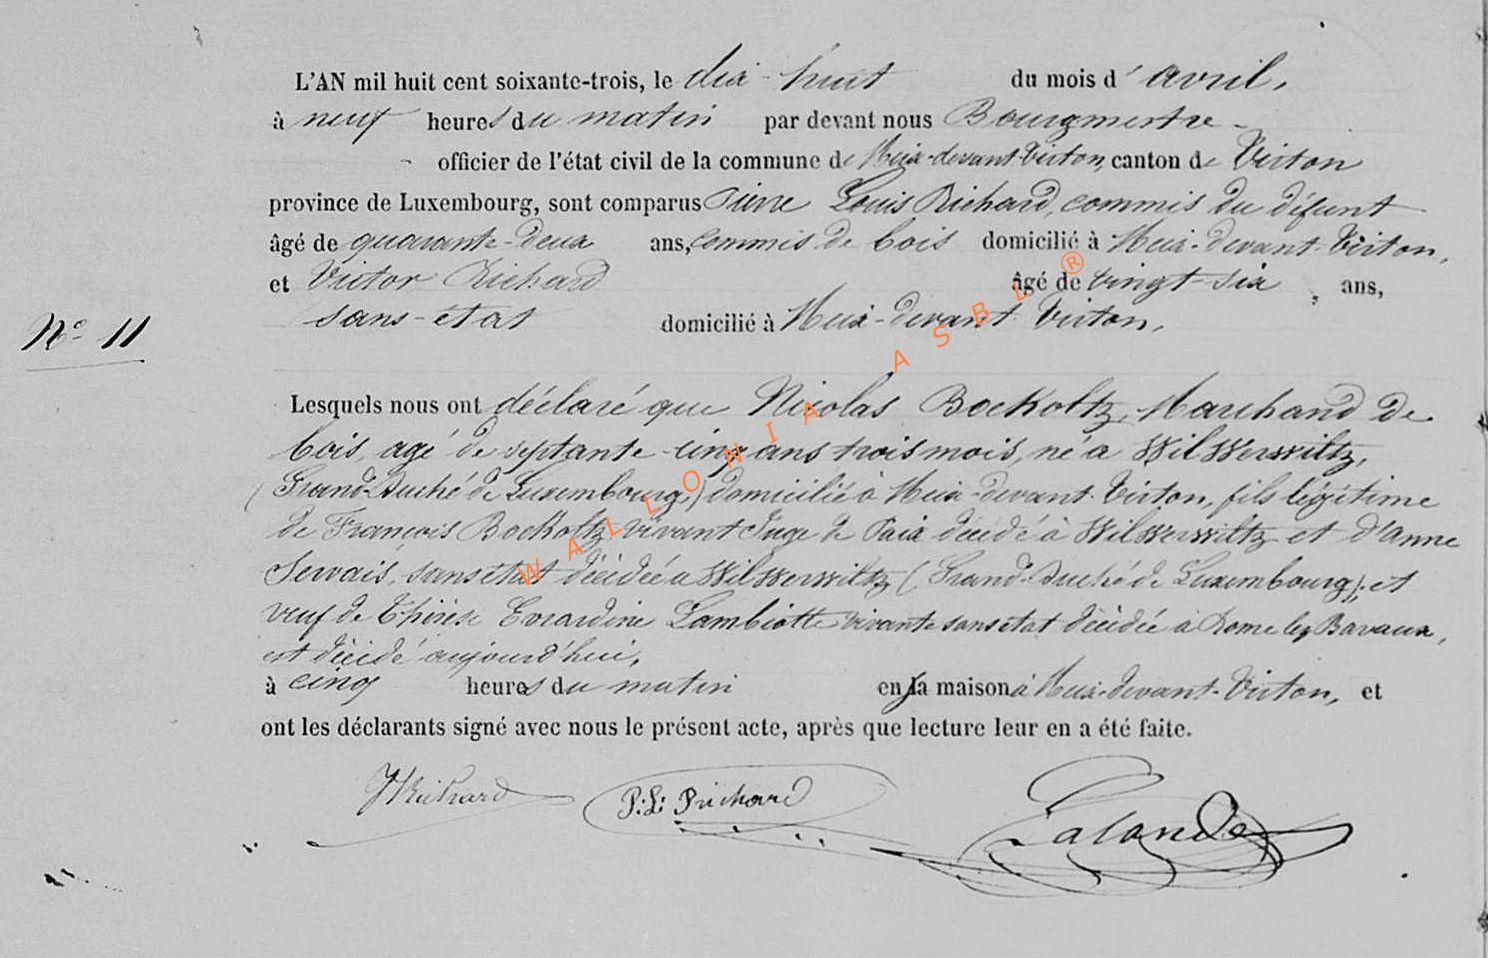 L'AN mil huit cent soixante-trois, le dix-huit du mois d'avril,
à neuf heures du matin par devant nous Bourgmestre
officier de l'état civil de la commune de Meix-devant-Virton, canton de Virton
province de Luxembourg, sont comparus Pierre Louis Richard, commis du défunt
âgé de quarante-deux ans, commis de bois domicilié à Meix-devant-Virton,
et Victor Richard âgé de vingt-six ans,
sans-état domicilié à Meix-devant Virton,
N° 11
Lesquels nous ont déclaré que Nicolas Bockoltz, Marchand de
bois, agé de septante cinq ans trois mois, né à Wilwerwiltz,
(Grand-Duché de Luxembourg) domicilié à Meix-devant-Virton, fils légitime
de François Bockoltz vivant Juge de Paix décédé à Wilwerwiltz et d'Anne
Servais, sans état décédée à Wilwerwiltz (Grand-Duché de Luxembourg), et
veuf de Thérèse Evrardine Lambiotte vivante sans état décédée à Bavaux,
est décédé aujourd'hui,
à cinq heures du matin en sa maison à Meix-devant-Virton, et
ont les déclarants signé avec nous le présent acte, après que lecture leur en a été faite.
VRichard P: L: Richard Lalande
WALLONIA ASBL ®